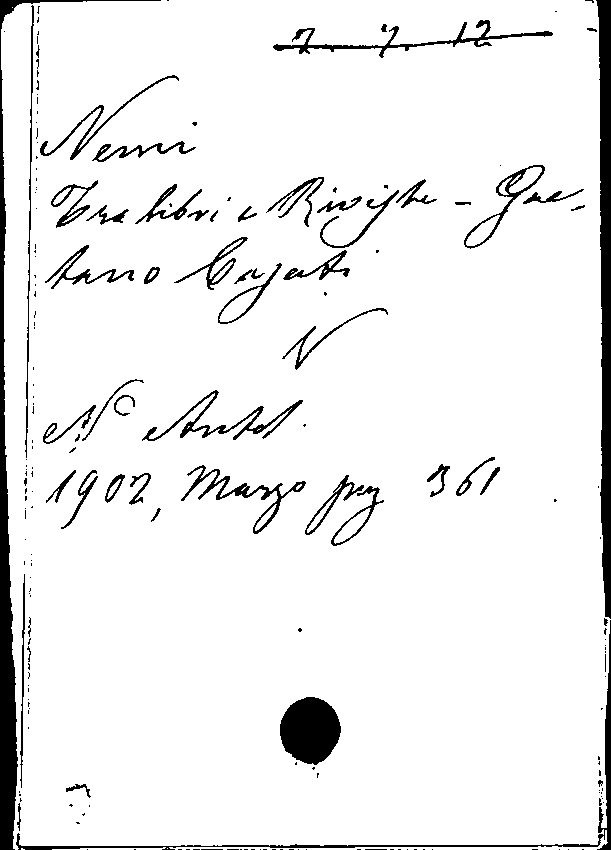 7. 7. 12
Nemi
Tra libri e Riviste - Gae-
tano Cagati
N
Na Antol.
1902, Marzo pag 361